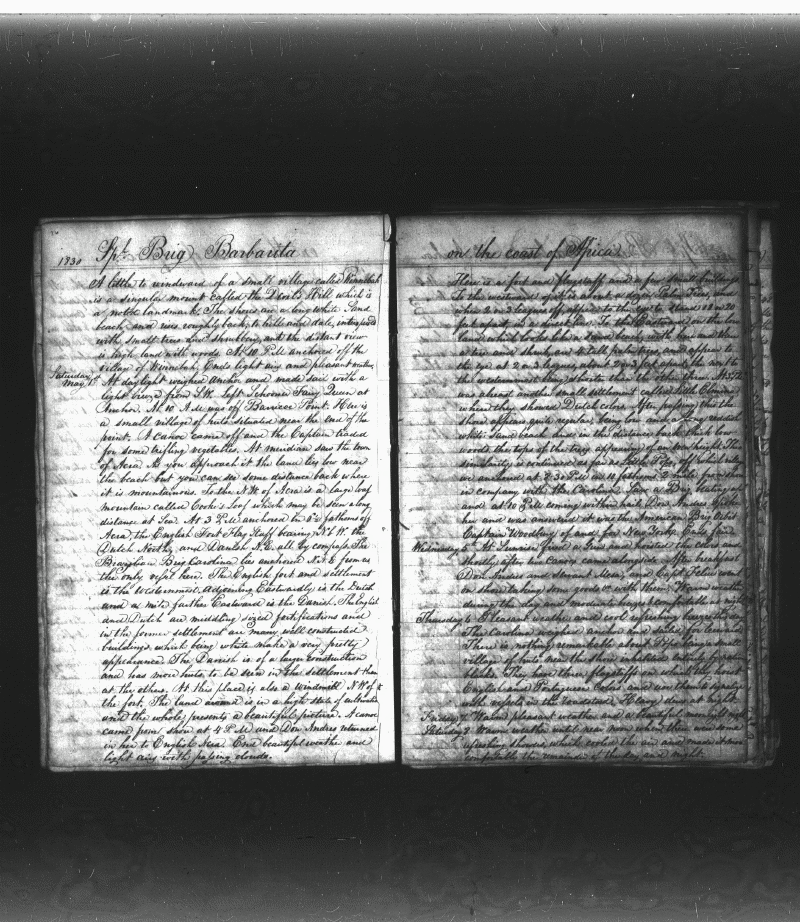 1830 Spl. Brig Barbarita
A little to windward of a small village called Winnebah
is a singular mount called the Devil's Hill which is
a noble landmark. The shores are a long white Sand
beach and rises roughly back, to hills and dale, interspersed
with small trees and shrubery, and the distant view
is high land with woods. At 11 P.M anchored off the
village of Winnebah, Ends light airs and pleasant weather.
Saturday May 1st At daylight weighed Anchor and made sail with a
light breeze from S.W. left Schooner Fairy Queen at
Anchor. At 10 A.M was off Barracoe Point. Here is
a small village of huts situated near the end of the
point. A canoe came off and the Captain traded
for some trifling vegetables. At meridian saw the town
of Acra. As you approach it the land lies low near
the beach but you can see some distance back where
it is mountainous. To the N.W. of Acra is a large loaf
mountain called Cook's Loaf which may be seen a long
distance at Sea. At 3 P.M anchored in fathoms off
Acra the English Fort Flag Staff bearing N.b W. the
Dutch North, and Danish N.E. all by compass. The
Brazilian Brig Carolina lies anchored N.N.E from us
the only vessel here. The English fort and settlement
is the Westernmost. Adjoining Eastwardly is the Dutch
and a mile farther Eastward is the Danish. The English
and Dutch are middling sized fortifications and
in the former settlement are many well constructed
buildings, which being white make a very pretty
appearance. The Danish is of a larger construction
and has more huts to be seen in the settlement than
at the others. At this place is also a windmill N.W of
the fort. The land around is in a high state of cultivation
and the whole presents a beautiful picture. A canoe
came from shore at 4 P.M and Don Andres returned
in her to English Acra. Ends beautiful weather and
light airs with passing clouds.
on the coast of Africa
Here is a fort and flagstaff and a few small buildings
To the westward of this about a dozen Palm Trees, and
when 2 or 3 leagues off appear to the eye to stand 20 or 30
feet apart in a direct line. To the Eastward on the low
land which looks like a Sand beach, with now and then
a tree and shrub, are 4 tall palm trees, and appear to
the eye at 2 or 3 leagues about 2 or 3 feet apart the next to
the westernmost being shorter than the others. At
was abreast another small settlement called Little
where they showed Dutch colors. After passing this the
shore appears quite regular, being low and a
white Sand beach and in the distance back thick low
woods the tops of the trees appearing of an even height. This
similarity is continued as far as Little Popo, off which place
we anchored at 2.30 P.M in fathoms
in company with the Carolina. Saw a Brig
and at 10 P.M coming within hail Don Andres
her and was answered it was the American Brig
Captain Woodbury of and for New York. Ends
Wednesday 5 At Sunrise fired a Gun and hoisted the colors and
shortly after two canoes came alongside. After breakfast
Don Andres and Servant Mear, and Capt Feliu went
on shore taking some goods with them. Warm weather
during the day and moderate
Thursday 6 Pleasant weather and cool refreshing breezes this day.
The Carolina weighed anchor and sailed for leeward.
There is nothing remarkable about Popo being a small
village of huts near the shore inhabited entirely by
blacks. They have three flagstaffs on which they hoist
English and Portuguese Colors and use them to
with vessels in the roadstead. Heavy dews at night
Friday 7 Warm pleasant weather and a beautiful moonlight night
Saturday 8 Warm weather until near noon when there were some
refreshing showers, which cooled the air and made it more
comfortable the remainder of the day and night.